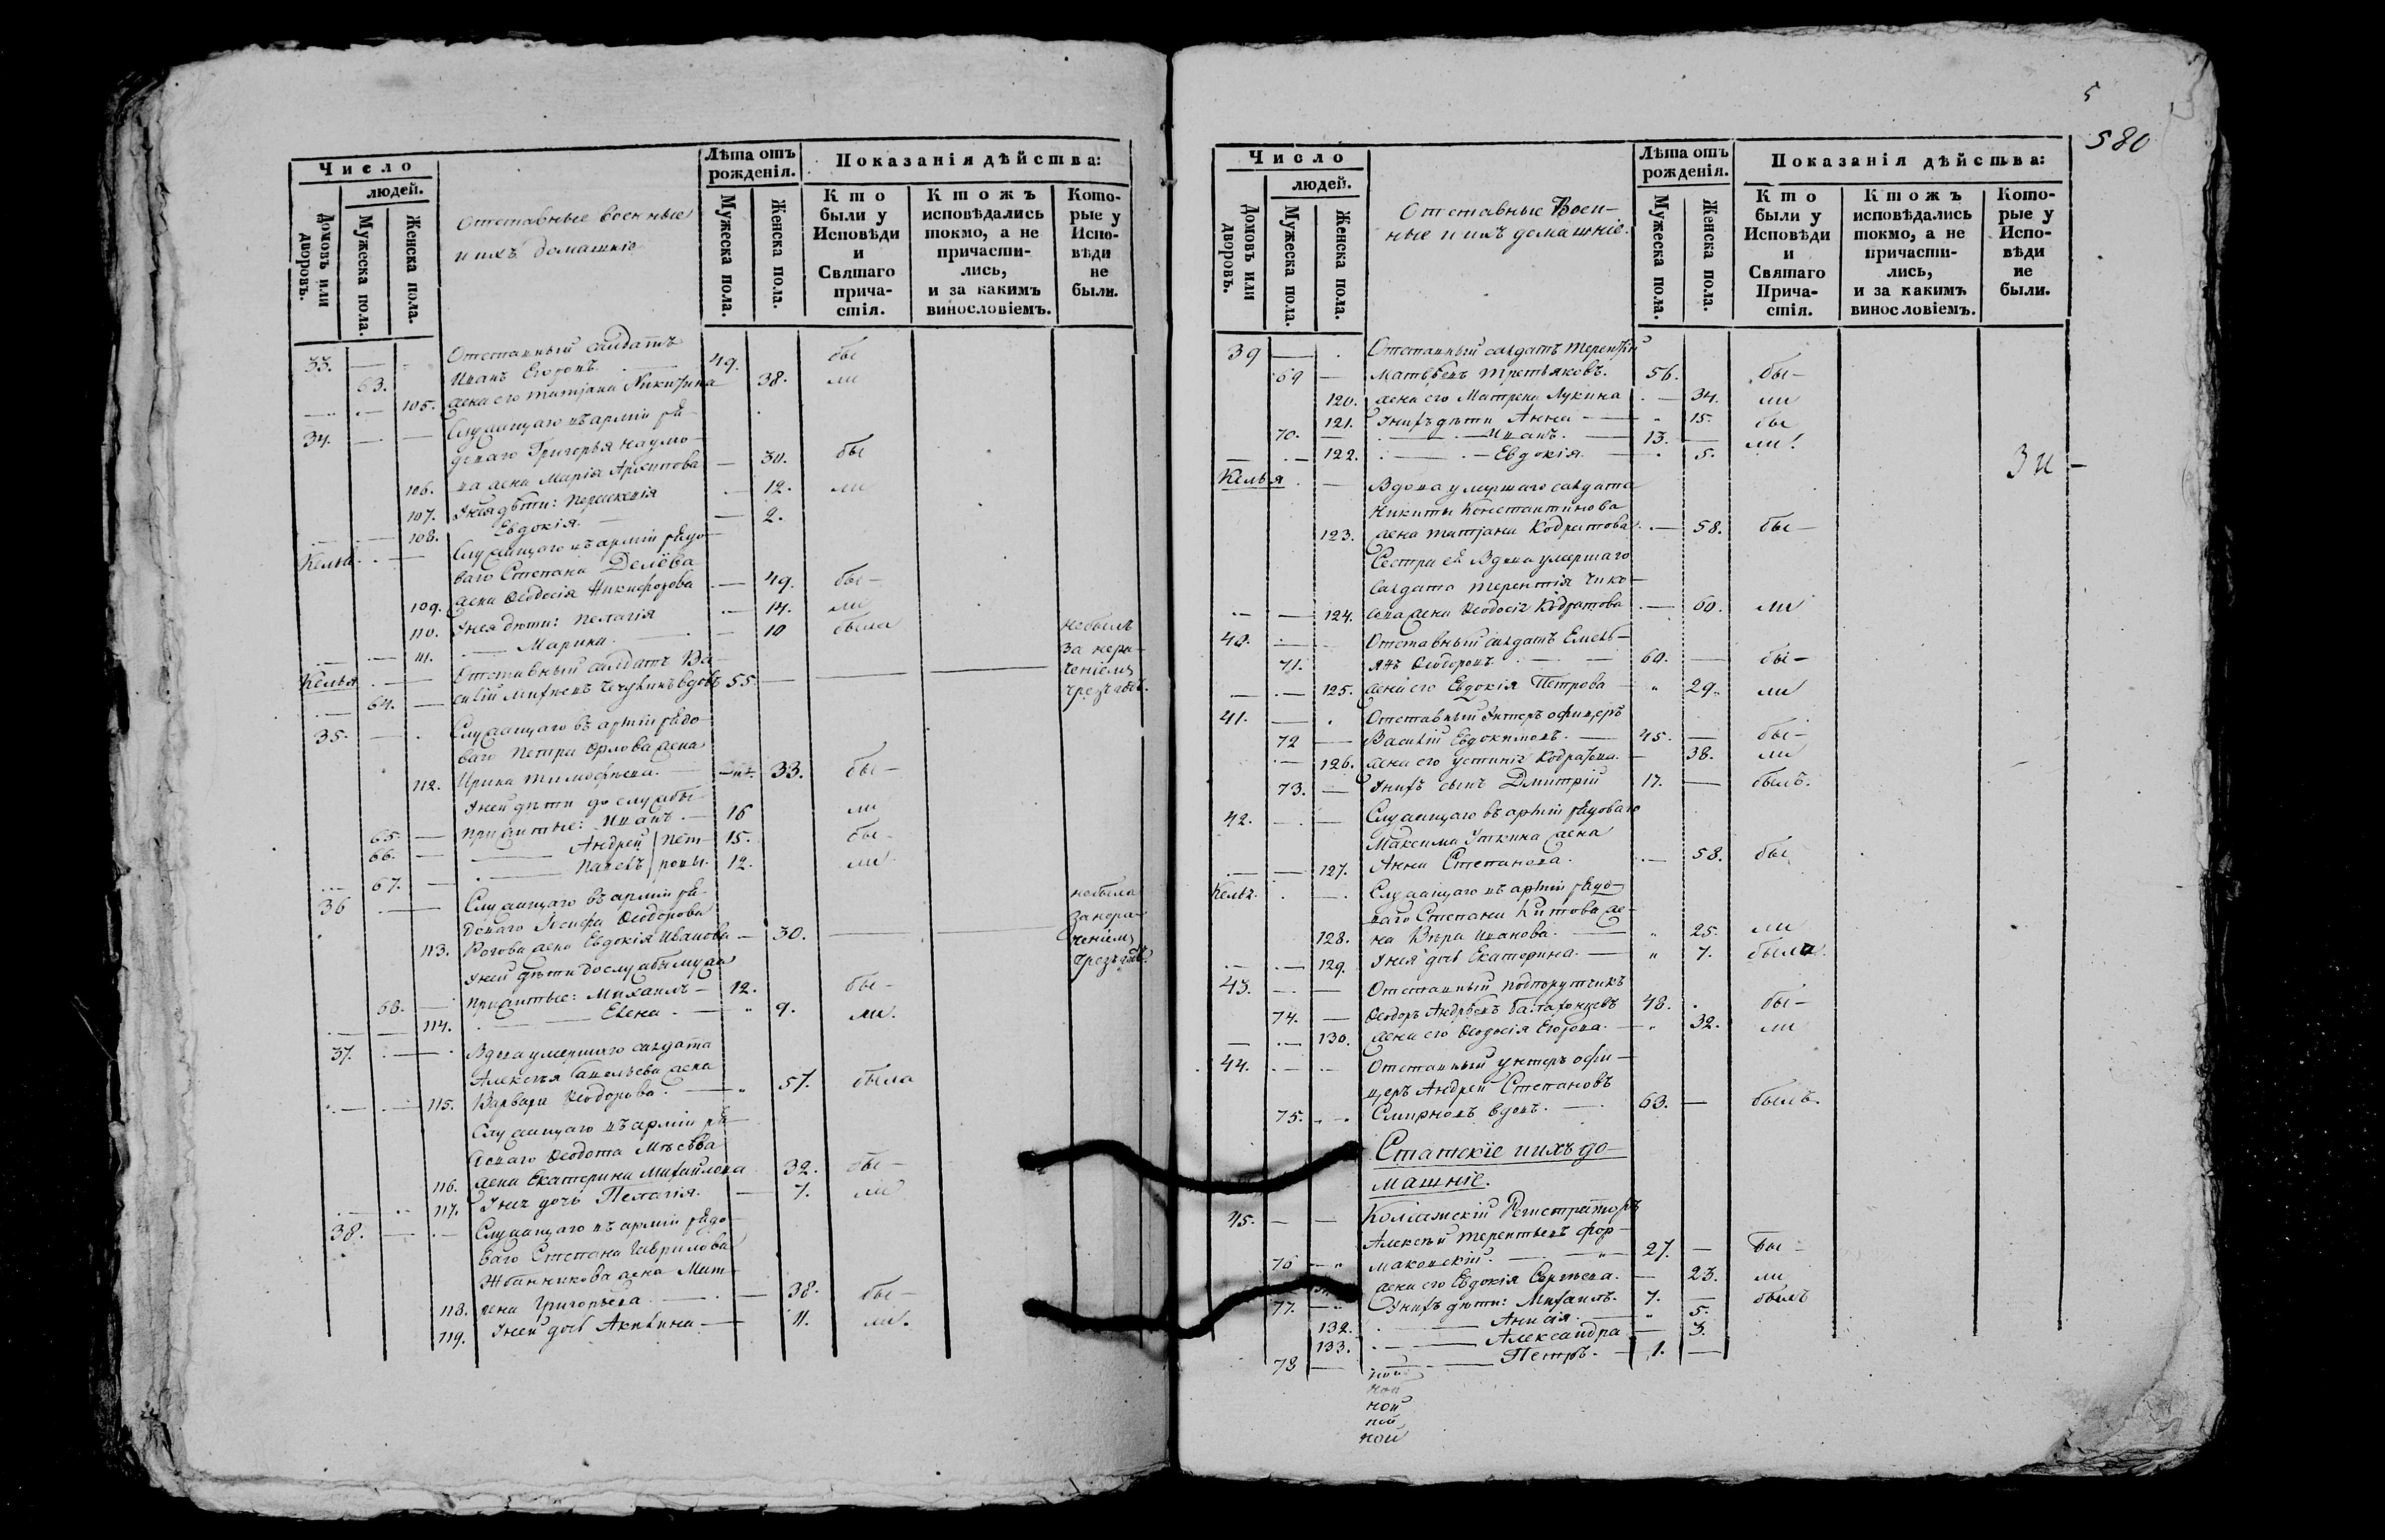 Число
людей.
Домовъ или дворовъ.
Мужеска пола.
Женска пола.
Отставные военные
и ихъ домашніе
Лѣта отъ рожденія.
Мужеска пола.
Женска пола.
Показанія дѣйства:
Кто были у Исповѣди и Святаго прича- стія.
Ктожъ исповѣдались токмо, а не причасти- лись, и за какимъ винословіемъ.
Кото- рые у Испо- вѣди не были.
33. Отставный салдатъ
63. Иванъ Егоровъ. 49. бы
105. жена его Татіяна Никитина 38. ли
34. Служащаго въ арміи ря-
доваго Григорья Наумо-
106. ва жена Марія Архипова 30. бы
107. У нея дѣти: Параскевія 12. ли
108. Евдокія. 2.
Келья Служащаго въ арміи рядо-
ваго Степана
109. жена Ѳеодосія Никифорова 49. бы-
110. У нея дѣти: Пелагія 14. ли
111. Марина. 10 была
Келья Отставный салдатъ Ва-
64. силій вдовъ 55. не былъ за нера- ченіемъ
35. Служащаго въ арміи рядо-
ваго Петра Орлова жена
112. Ирина Тимофѣева. 33. бы-
У ней дѣти до службы
65. прижитые: Иванъ. 16 ли
66. Андрей Пет- 15. бы-
67. Павелъ ровы. 12. ли
36 Служащаго въ арміи ря-
доваго Іосифа Ѳеодорова
113. Рогова жена Евдокія Иванова 30. не была за нера- ченіемъ
У ней дѣти до службы мужа
68. прижитые: Михаилъ 12. бы-
114. Елена. 9. ли.
37. Вдова умершаго салдата
Алексѣя Савельева жена
115. Варвара Ѳеодорова. 57. была
Служащаго въ арміи ря-
доваго Ѳеодота
116. жена Екатерина Михайлова 32. бы-
117. У них дочь Пелагія. 7. ли
38. Служащаго въ арміи рядо-
ваго Степана Гаврилова
Жбанникова жена Мат-
118. рена Григорьева 38. бы-
119. У ней дочь Акилина 11. ли.
5
580
Число
людей.
Домовъ или дворовъ.
Мужеска пола.
Женска пола.
Отставные Воен-
ные и ихъ домашніе.
Лѣта отъ рожденія.
Мужеска пола.
Женска пола.
Показанія дѣйства:
Кто были у Исповѣди и Святаго Прича- стія.
Ктожъ исповѣдались токмо, а не причасти- лись, и за какимъ винословіемъ.
Кото- рые у Испо- вѣди не были.
39 Отставный салдатъ Терентій
69 Матвѣевъ Третьяковъ. 56. бы-
120. жена его Матрена Лукина 34. ли
121. У нихъ дѣти Анна 15. бы
70. Иванъ. 13. ли.
122. Евдокія. 5.
Келья Вдова умершаго салдата
Никиты Константинова
123. жена Татіяна Кодратова 58. бы-
Сестра ея Вдова умершаго
Салдата Терентія Чико-
124. жена Ѳеодосія Кодратова 60. ли
40. Отставный салдатъ Емель-
71. янъ Ѳеодоровъ. 60. бы-
125. жена его Евдокія Петрова 29. ли
41. Отставный Унтеръ офицеръ
72 Василій Евдокимовъ. 45. бы-
126. жена его Устинія Кодратова. 38. ли
73. У нихъ сынъ Дмитрій 17. былъ.
42. Служащаго въ арміи рядоваго
Максима Уткина жена
127. Анна Степанова. 58. бы
Келья. Служащаго въ арміи рядо-
ваго Степана Китова же-
128. на Вѣра Иванова. 25. ли
129. У нея дочь Екатерина. 7. была.
43. Отставный подпорутчикъ
74. Ѳеодоръ Андрѣевъ 48. бы-
130. жена его Ѳеодосія Егорова. 32. ли
44. Отставный унтеръ офи-
церъ Андрей Степановъ
75. Смирновъ вдовъ. 63. былъ.
Статскіе и ихъ до-
машніе.
45. Колежскій Регистраторъ
Алексѣй Терентьевъ Фор-
76 маковскій. 27. бы-
жена его Евдокія Сергѣева. 23. ли
77. У нихъ дѣти: Михаилъ. 7. былъ
132. Анисія. 5.
133. Александра 3.
78 Петръ. 1.
ной
ной
ной
ной